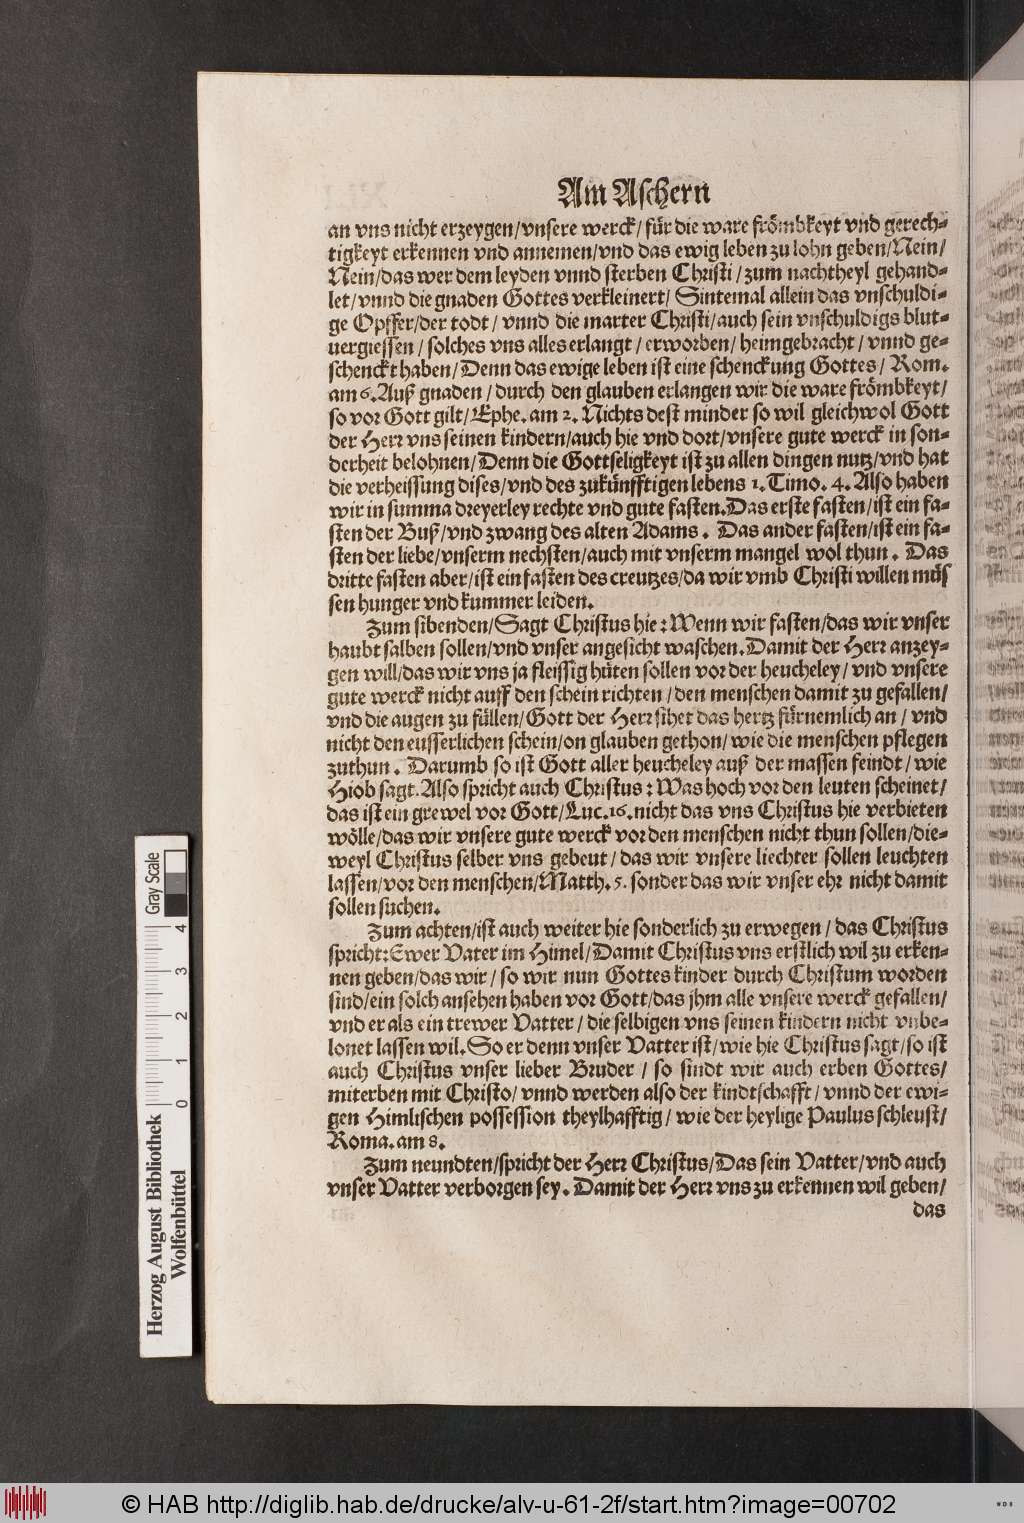 Am Aschern
an vns nicht erzeygen/vnsere werck/ für die ware frömbkeyt vnd gerech-
tigkeyt erkennen vnd annemen/vnd das ewig leben zu lohn geben/Nein/
Nein/das wer dem leyden vnnd sterben Christi/zum nachtheyl gehand-
let/vnnd die gnaden Gottes verkleinert/ Sintemal allein das vnschuldi-
ge Opffer/der todt/ vnnd die marter Christi/auch sein vnschuldigs blut-
uergiessen/ solches vns alles erlangt/ erworben/ heimgebracht/ vnnd ge-
schenckt haben/Denn das ewige leben ist eine schenckung Gottes/ Rom.
am 6. Auß gnaden/durch den glauben erlangen wir die ware frömbkeyt/
so vor Gott gilt/Ephe. am 2. Nichts dest minder so wil gleichwol Gott
der Herr vns seinen kindern/auch hie vnd dort/vnsere gute werck in son-
derheit belohnen/Denn die Gottseligkeyt ist zu allen dingen nutz/vnd hat
die verheissung dises/vnd des zukünfftigen lebens 1. Timo. 4. Also haben
wir in summa dreyerley rechte vnd gute fasten.Das erste fasten/ist ein fa-
sten der Buß/vnd zwang des alten Adams. Das ander fasten/ist ein fa-
sten der liebe/vnserm nechsten/auch mit vnserm mangel wol thun. Das
dritte fasten aber/ist ein fasten des creutzes/da wir vmb Christi willen müs
sen hunger vnd kummer leiden.
Zum sibenden/Sagt Christus hie: Wenn wir fasten/das wir vnser
haubt salben sollen/vnd vnser angesicht waschen.Damit der Herr anzey-
gen will/das wir vns ja fleissig hüten sollen vor der heucheley/ vnd vnsere
gute werck nicht auff den schein richten/den menschen damit zu gefallen/
vnd die augen zu füllen/Gott der Herr sihet das hertz fürnemlich an/ vnd
nicht den eusserlichen schein/on glauben gethon/wie die menschen pflegen
zuthun. Darumb so ist Gott aller heucheley auß der massen feindt/ wie
Hiob sagt. Also spricht auch Christus: Was hoch vor den leuten scheinet/
das ist ein grewel vor Gott/Luc. 16. nicht das vns Christus hie verbieten
wölle/das wir vnsere gute werck vor den menschen nicht thun sollen/die-
weyl Christus selber vns gebeut/das wir vnsere liechter sollen leuchten
lassen/vor den menschen/Matth. 5. sonder das wir vnser ehr nicht damit
sollen suchen.
Zum achten/ist auch weiter hie sonderlich zu erwegen/ das Christus
spricht: Ewer Vater im Himel/Damit Christus vns erstlich wil zu erken-
nen geben/das wir/ so wir nun Gottes kinder durch Christum worden
sind/ein solch ansehen haben vor Gott/das jhm alle vnsere werck gefallen/
vnd er als ein trewer Vatter/die selbigen vns seinen kindern nicht vnbe-
lonet lassen wil. So er denn vnser Vatter ist/wie hie Christus sagt/so ist
auch Christus vnser lieber Bruder/ so sindt wir auch erben Gottes/
miterben mit Christo/vnnd werden also der kindtschafft/vnnd der ewi-
gen Himlischen possession theylhafftig/ wie der heylige Paulus schleust/
Roma. am 8.
Zum neundten/spricht der Herr Christus/Das sein Vatter/vnd auch
vnser Vatter verborgen sey. Damit der Herr vns zu erkennen wil geben/
das
Gray Scale
0 1 2 3 4
Herzog August Bibliothek
Wolfenbüttel
© HAB http://diglib.hab.de/drucke/alv-u-61-2f/start.htm?image=00702